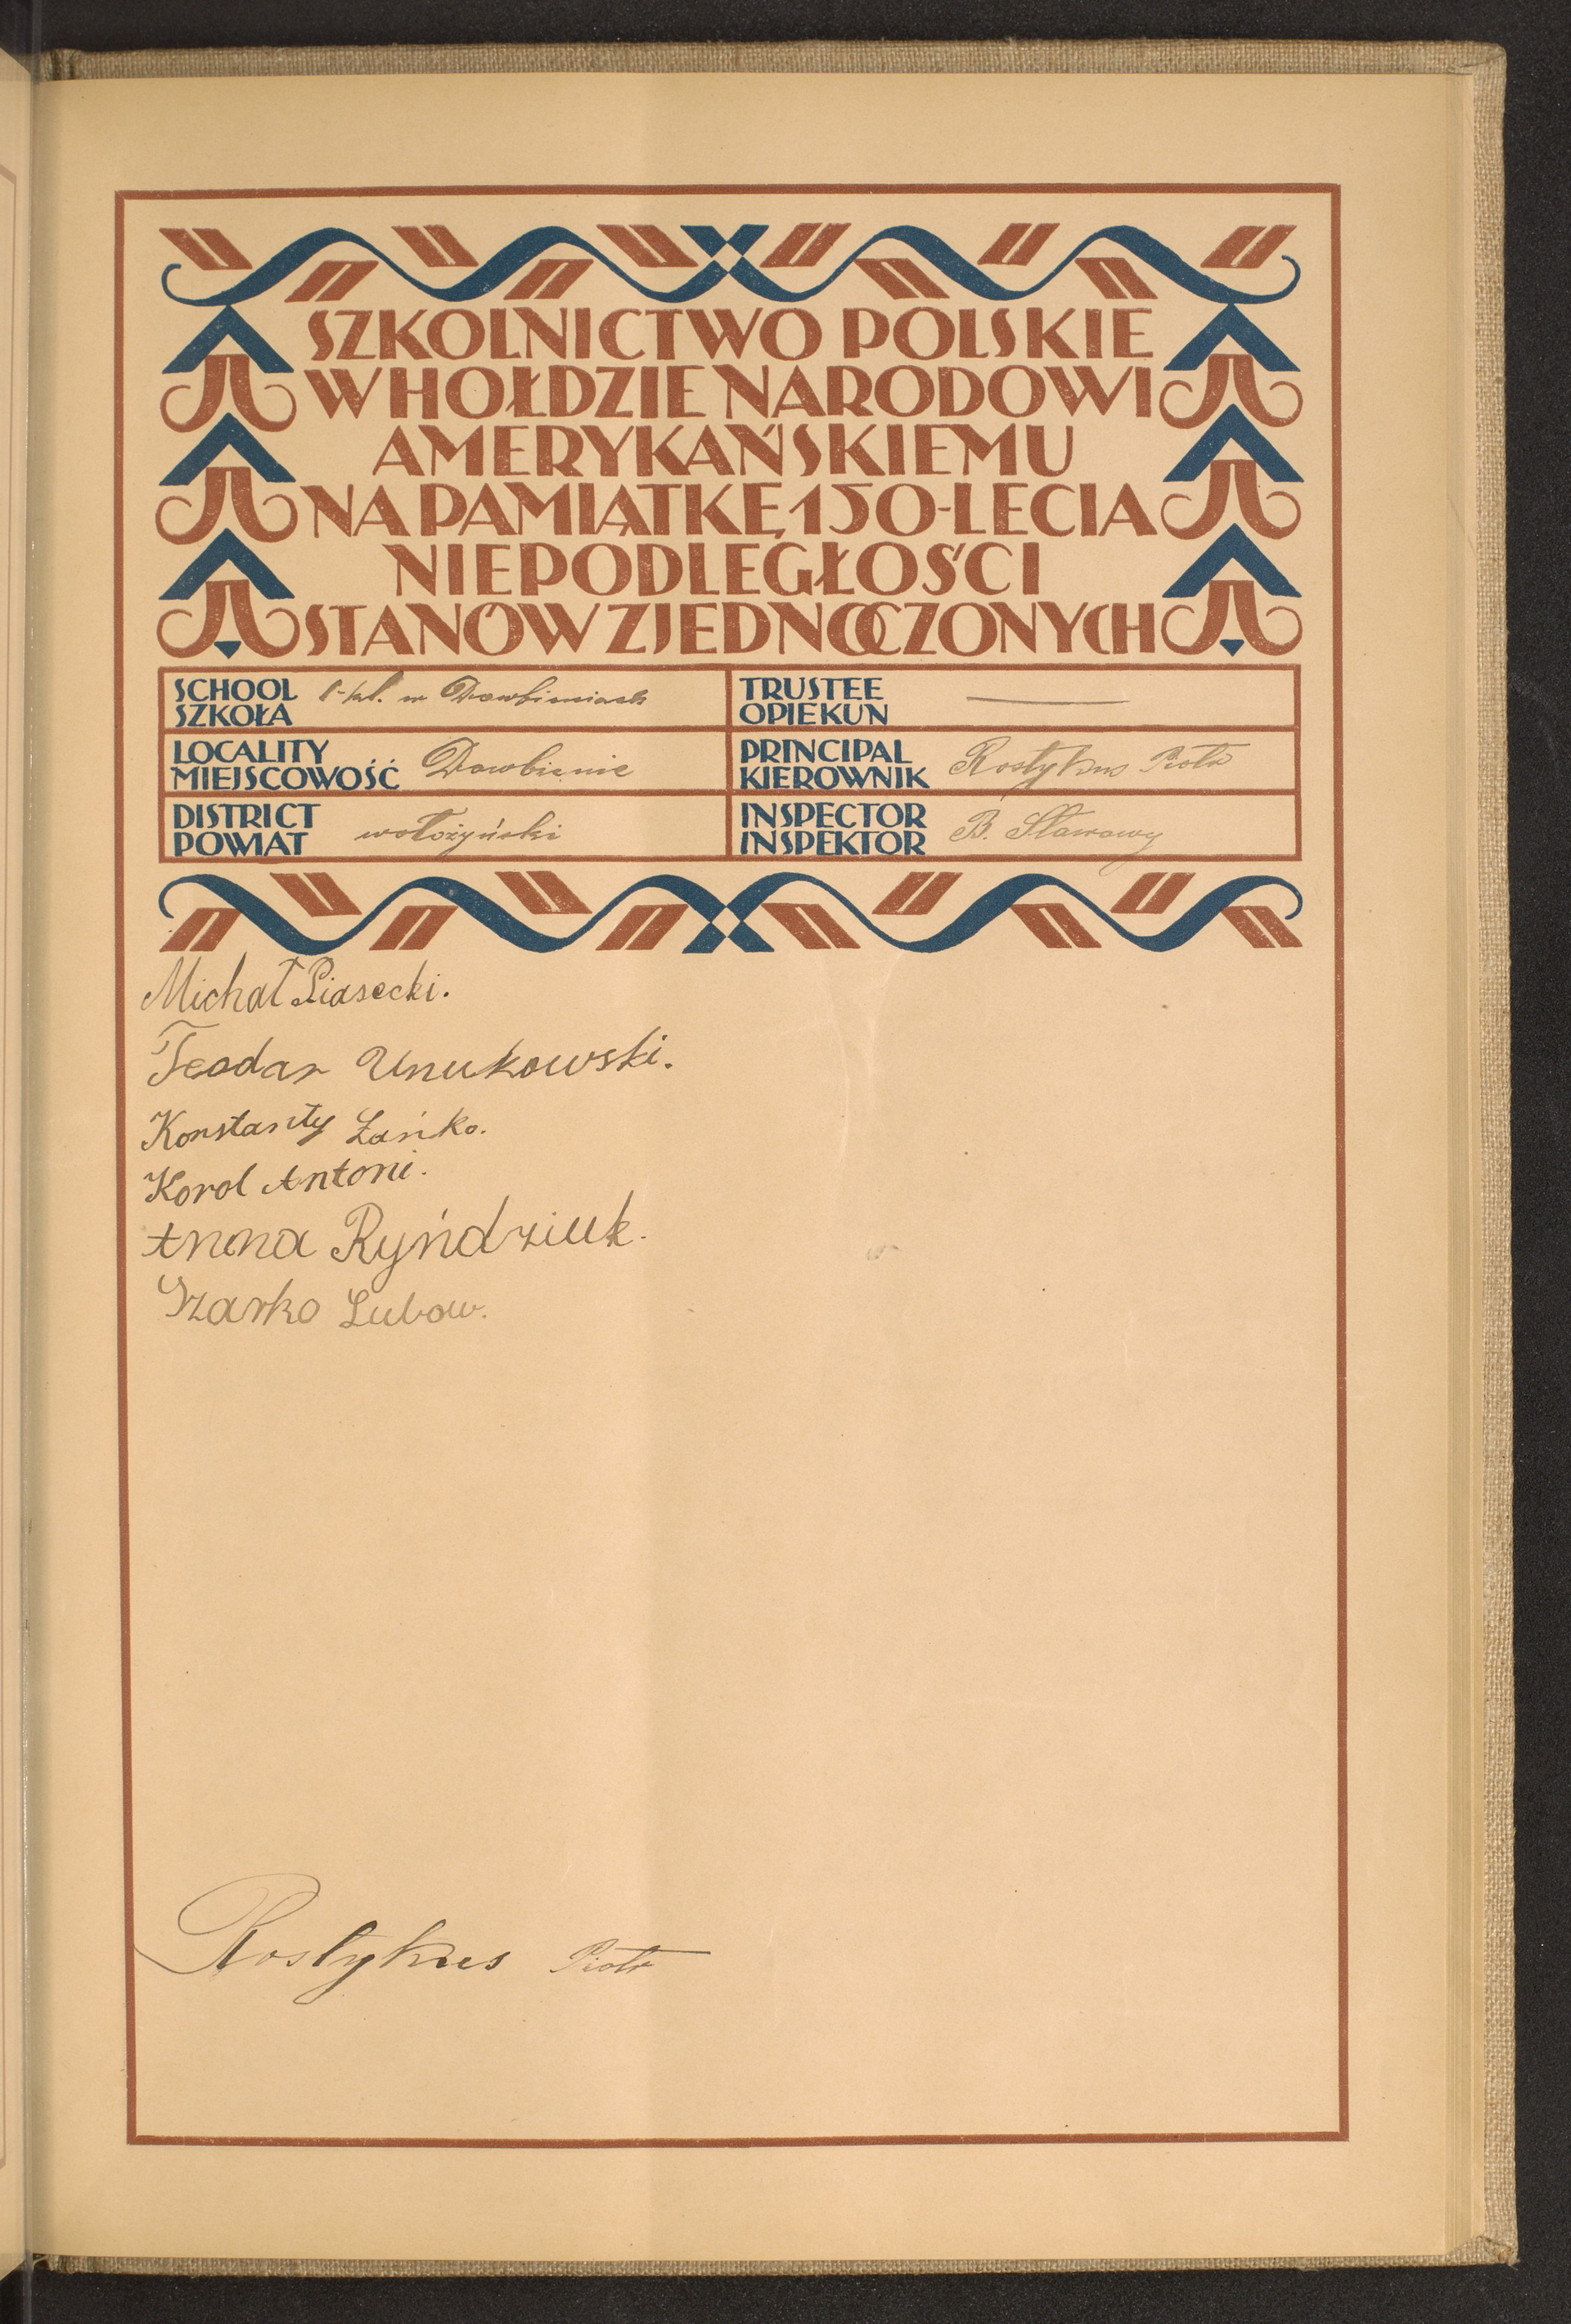 SZKOLNICTWO POLSKIE
W HOŁDZIE NARODOWI
AMERYKAŃSKIEMU
NA PAMIĄTKĘ 150-LECIA
NIEPODLEGŁOŚCI
STANÓW ZJEDNOCZONYCH
SCHOOL
SZKOŁA 1-kl. w Dowbieniach
TRUSTEE
OPIEKUN
LOCALITY
MIEJSCOWOŚĆ Dowbienie
PRINCIPAL
KIEROWNIK Rostykus Piotr
DISTRICT
POWIAT wołożyński
INSPECTOR
INSPEKTOR B. Stawowy
Michał Piasecki.
Teodar Unukowski.
Konstanty Łańko.
Korol Antoni.
Anna Ryńdziuk.
Lubow.
Rostykus Piotr